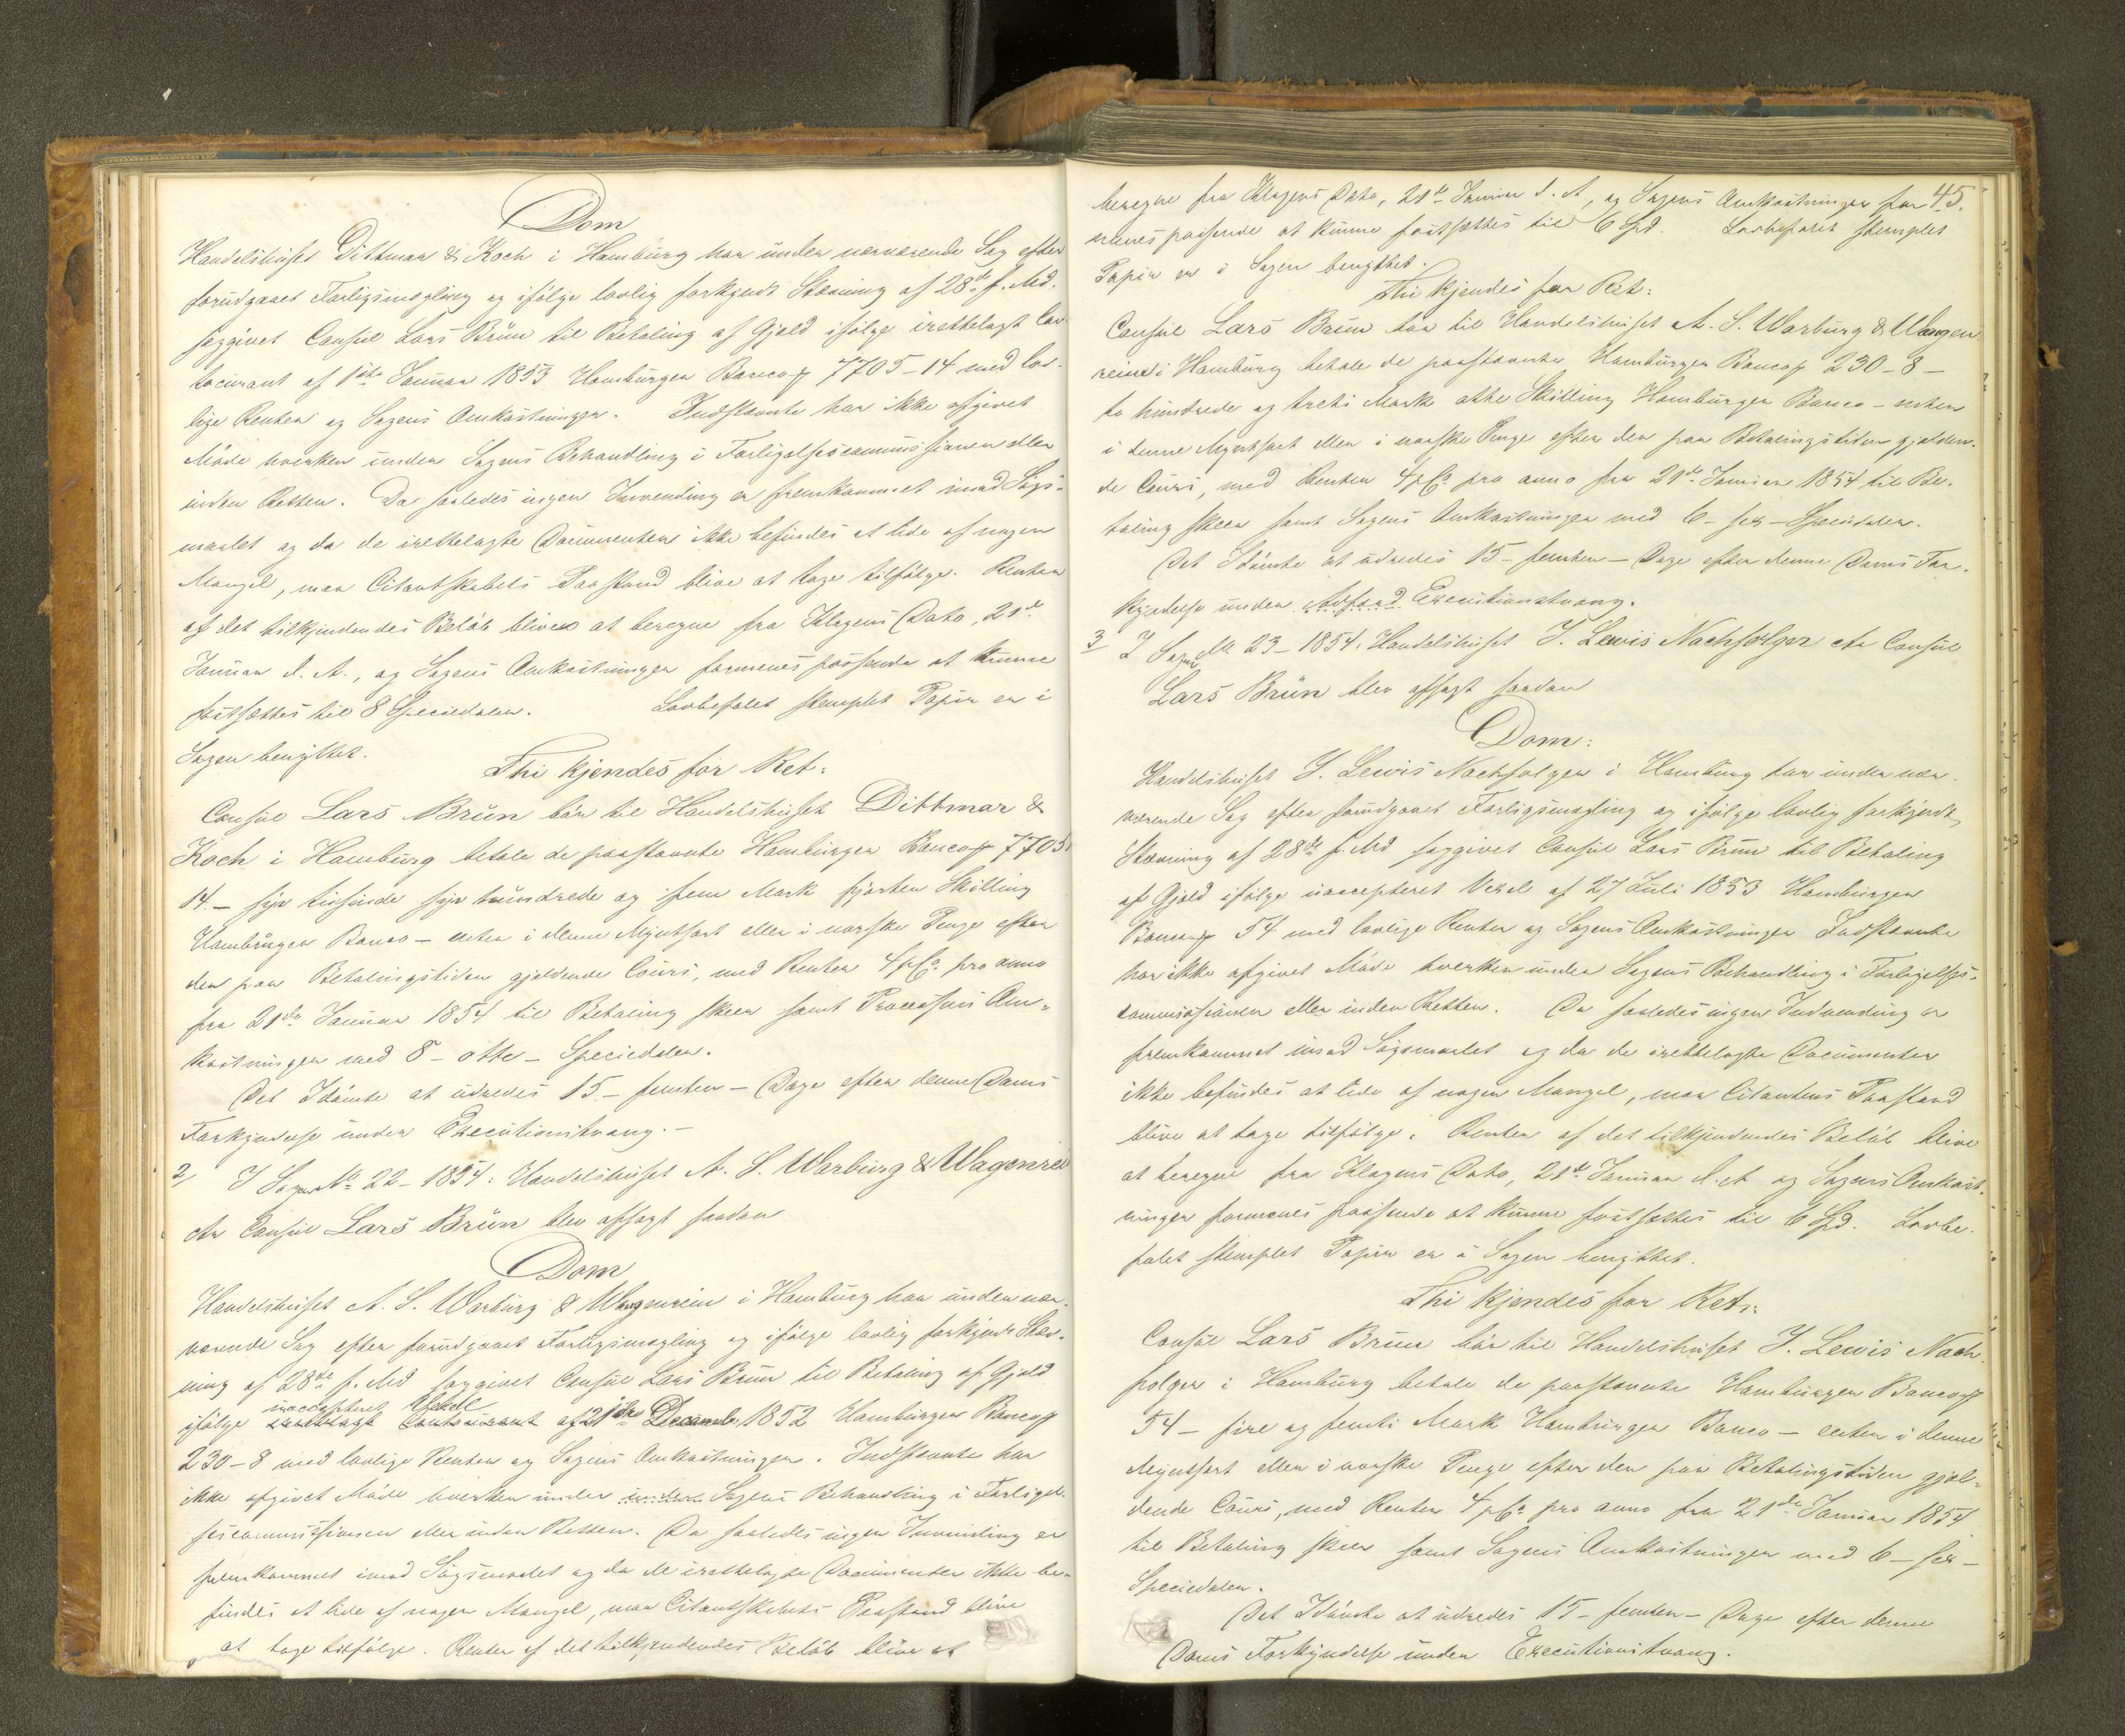 Dom
Handelshuset Dittmar & Koch i Hamburg har under nærværende Sag efter
forudgaaet Forligsmægling og ifølge lovlig forkyndt Stævning af 28de f. Md.
saggivet Consul Lars Brun til Betaling af Gjeld ifølge irettelagt Con-
tocurant af 1ste Januar 1853 Hamburger Banco 7705-14 med lov-
lige Renter og Sagens Omkostninger. Indstævnte har ikke afgivet
Møde hverken under Sagens Behandling i Forligelsescommissionen eller
inden Retten. Da saaledes ingen Invending er fremkommet imod Søgs-
maalet og da de irettelagte Documenter ikke befindes at lide af nogen
Mangel, maa Citantskabets Paastand blive at tage tilfølge. Renten
af det tilkjendendes Beløb bliver at beregne fra Klagens Dato, 21de
Januar d. A., og Sagens Omkostninger formenes passende at kunne
fastsættes til 8 Speciedaler. Lovbefalet stemplet Papir er i
Sagen benyttet.
Thi kjendes for Ret:
Consul Lars Brun bør til Handelshuset Dittmar &
Koch i Hamburg betale de paastævnte Hamburger Banco 7705
14. - syv tusinde syv hundrede og fem Mark fjorten Skilling
Hamburger Banco - enten i denne Myntsort eller i norske Penge efter
den paa Betalingstiden gjeldende Cours, med Renter 4 pCt pro anno
fra 21de Januar 1854 til Betaling skeer samt Processens Om-
kostninger med 8 - otte - Speciedaler.
Det Idømte at udredes 15. - femten - Dage efter denne Doms
Forkyndelse under Executionstvang. -
2, I Sagen No 22 - 1854: Handelshuset A. S. Warburg & Wagenrei
ctr Consul Lars Brun blev afsagt saadan
Dom
Handelshuset A. S. Warburg & Wagenrein i Hamburg har under nær-
værende Sag efter forudgaaet Forligsmægling og ifølge lovlig forkyndt Stæv-
ning af 28de f. Md saggivet Consul Lars Brun til Betaling af Gjeld
uaccepteret Vexel
ifølge irettelagt Contocurant af 21de December 1852 Hamburger Banco
230-8 med lovlige Renter og Sagens Omkostninger. Indstævnte har
ikke afgivet Møde hverken under under Sagens Behandling i Forligel-
sescommissionen eller inden Retten. Da saaledes ingen Invending er
fremkommet imod Søgsmaalet og da de irettelagte Documenter ikke be-
findes at lide af nogen Mangel, maa Citantskabets Paastand blive
at tage tilfølge. Renter af det tilkjendendes Beløb blive at
45.
beregne fra Klagens Dato, 21de Januar d. A, og Sagens Omkostninger for-
menes passende at kunne fastsættes til 6 Spd. Lovbefalet stemplet
Papir er i Sagen benyttet.
Thi kjendes for Ret:
Consul Lars Brun bør til Handelshuset A. S. Warburg & Wagen
rein i Hamburg betale de paastævnte Hamburger Banco 230-8-
to hundrede og treti Mark otte Skilling Hamburger Banco - enten
i denne Myntsort eller i norske Penge efter den paa Betalingstiden gjelden-
de Cours, med Renten 4 pCt pro anno fra 21de Januar 1854 til Be-
taling skeer samt Sagens Omkostninger med 6 - sex - Speciedaler.
Det Idømte at udredes 15 - femten - Dage efter denne Doms For-
kyndelse under Adfærd Executionstvang.
3 I Sagen No 23 - 1854. Handelshuset J. Lewis Nachfolger ctr Consul
Lars Brun blev afsagt saadan
Dom:
Handelshuset J. Lewis Nachfolger i Hamburg har under nær-
værende Sag efter forudgaaet Forligsmægling og ifølge lovlig forkyndt
Stævning af 28de f. Md saggivet Consul Lars Brun til Betaling
af Gjeld ifølge uaccepteret Vexel af 27 Juli 1853 Hamburger
Banco 54 med lovlige Renter og Sagens Omkostninger Indstævnte
har ikke afgivet Møde hverken under Sagens Behandling i Forligelses-
commissionen eller inden Retten. Da saaledes ingen Indvending er
fremkommet imod Søgsmaalet og da de irettelagte Documenter
ikke befindes at lide af nogen Mangel, maa Citantens Paastand
blive at tage tilfølge. Renten af det tilkjendendes Beløb blive
at beregne fra Klagens Dato, 21de Januar d. A og Sagens Omkost-
ninger formenes passende at kunne fastsættes til 6 Spd. Lovbe-
falet stemplet Papir er i Sagen benyttet.
Thi kjendes for Ret:
Consul Lars Brun bør til Handelshuset J. Lewis Nach-
folger i Hamburg betale de paastævnte Hamburger Banco
54 - fire og femti Mark Hamburger Banco - enten i denne
Myntsort eller i norske Penge efter den paa Betalingstiden gjel-
dende Cours, med Renten 4 pCt pro anno fra 21de Januar 1854
til Betaling skeer samt Sagens Omkostninger med 6 - sex -
Speciedaler.
Det Idømte at udredes 15 - femten - Dage efter denne
Doms Forkyndelse under Executionstvang.